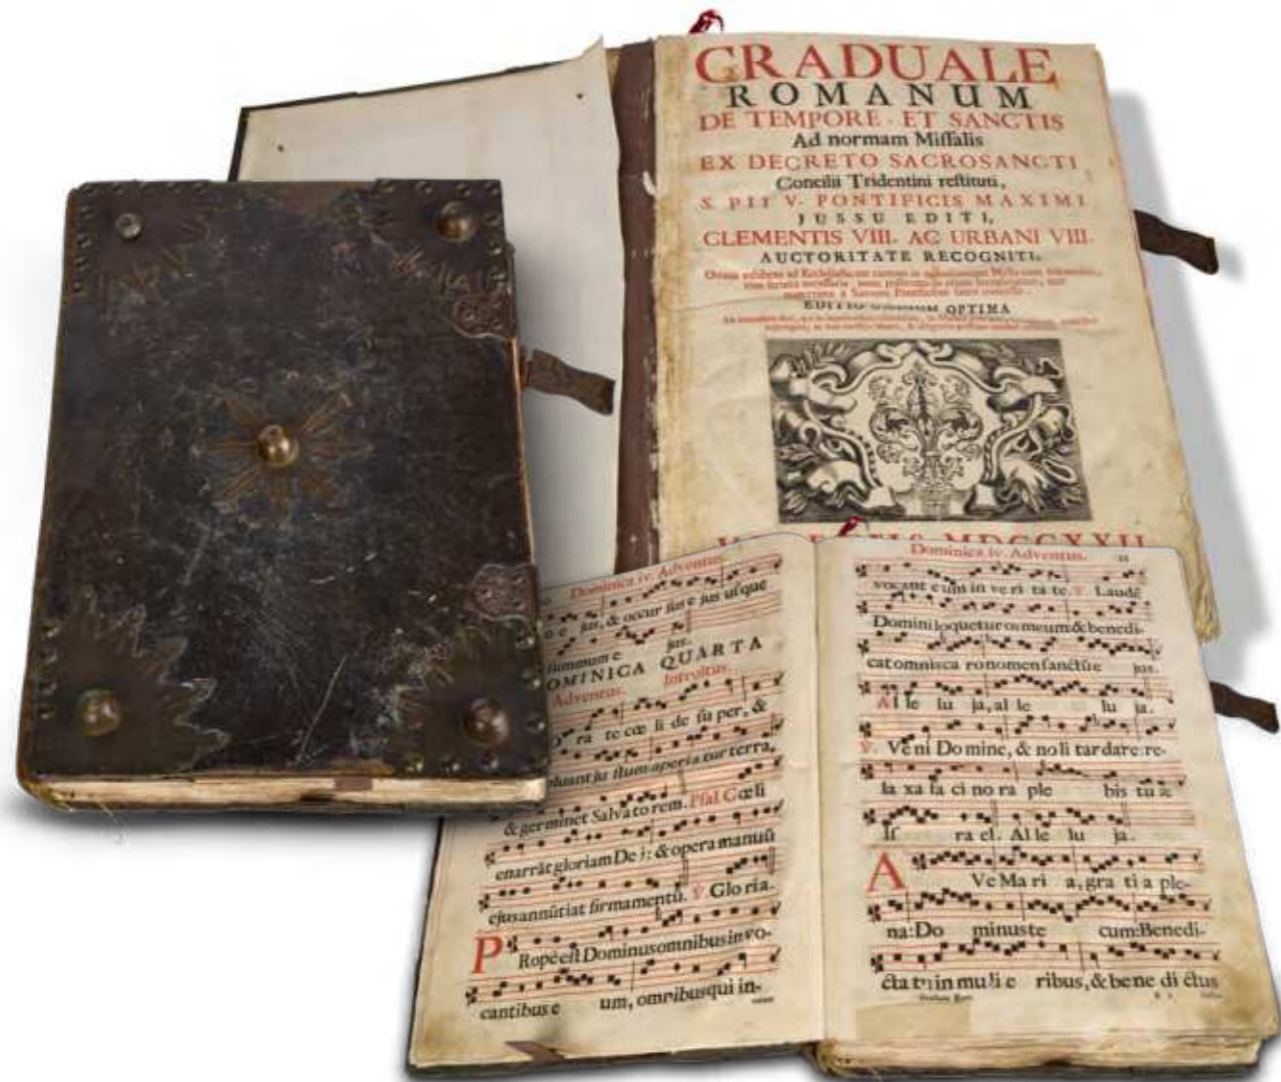 GRADUALE
ROMANUM
DE TEMPORE ET SANCTIS
Ad normam Miſſalis
EX DECRETO SACROSANCTI
Concilii Tridentini reſtituti,
S. PII V. PONTIFICIS MAXIMI
JUSSU EDITI,
CLEMENTIS VIII. AC URBANI VIII.
AUCTORITATE RECOGNITI.
EDITIO OPTIMA
MDCCXXII
Dominica iv. Adventus.
jus, & occur ſus e jus uſque
ſummum e jus.
OMINICA QUARTA
Adventus. Introitus.
ra te cœ li de ſu per, &
pluant ju ſtum aperia tur terra,
& germinet Salvato rem. Pſal. Cœli
enarrãt gloriam De i: & opera manuũ
ejus annũtiat firmamentũ. ℣. Glo ria.
P
Rope eſt Dominus omnibus in vo-
cantibus e um, omnibus qui in-
Dominica iv. Adventus. 21
vocant eum in ve ri ta te. ℣. Laudẽ
Domini loquetur os meum & benedi-
cat omnis ca ro nomen ſanctũ e jus.
Al le lu ja, al le lu ja.
℣. Ve ni Do mine, & no li tardare: re-
la xa fa ci no ra ple bis tu æ
Iſ ra el. Al le lu ja.
A
Ve Ma ri a, gra ti a ple-
na: Do minus te cum: Benedi-
cta tu in mu li e ribus, & be ne di ctus